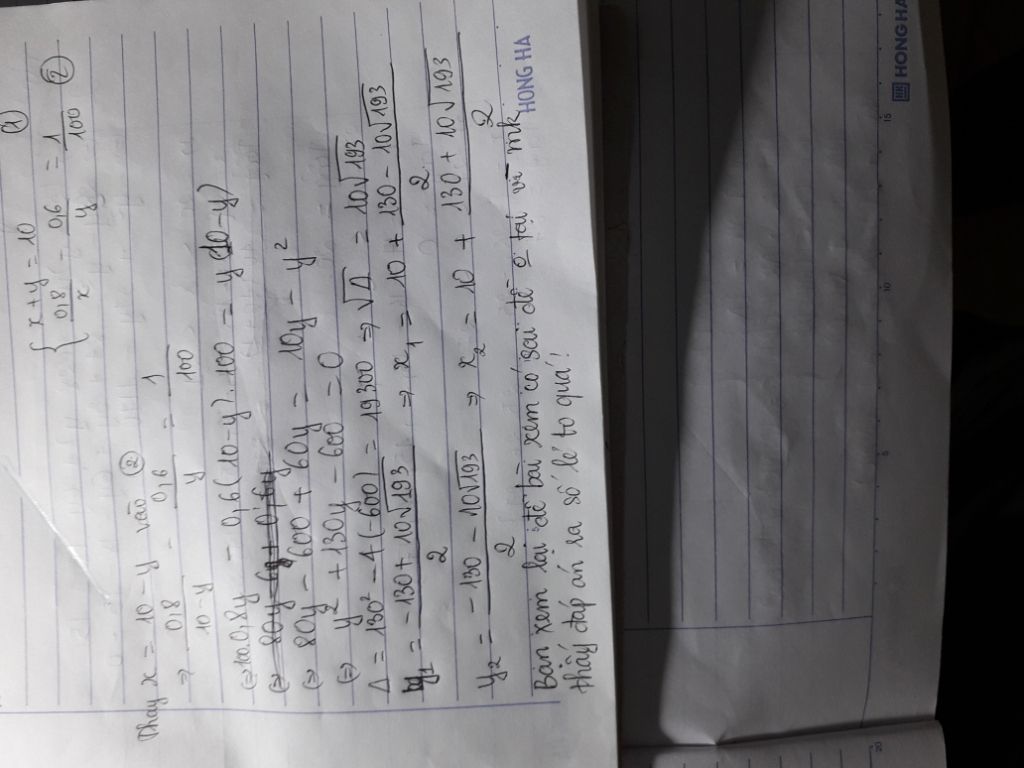 { x + y = 10 ①
0,8/x - 0,6/y = 1/100 ②
Thay x = 10 - y vào ②
⇒ 0,8/10-y - 0,6/y = 1/100
0,8y - 0,6(10-y).100 = y(10-y)
⇔ 80y - 600 + 60y = 10y - y²
⇔ y² + 130y - 600 = 0
Δ = 130² - 4(-600) = 19300 ⇒ √Δ = 10√193
y₁ = -130 + 10√193/2 ⇒ x₁ = 10 + 130 - 10√193/2
y₂ = -130 - 10√193/2 ⇒ x₂ = 10 + 130 + 10√193/2
Bạn xem lại đề bài xem có sai đề o tại vì mk
thấy đáp án ra số lẻ to quá!
HONG HA
HONG HA
5
10
15
20